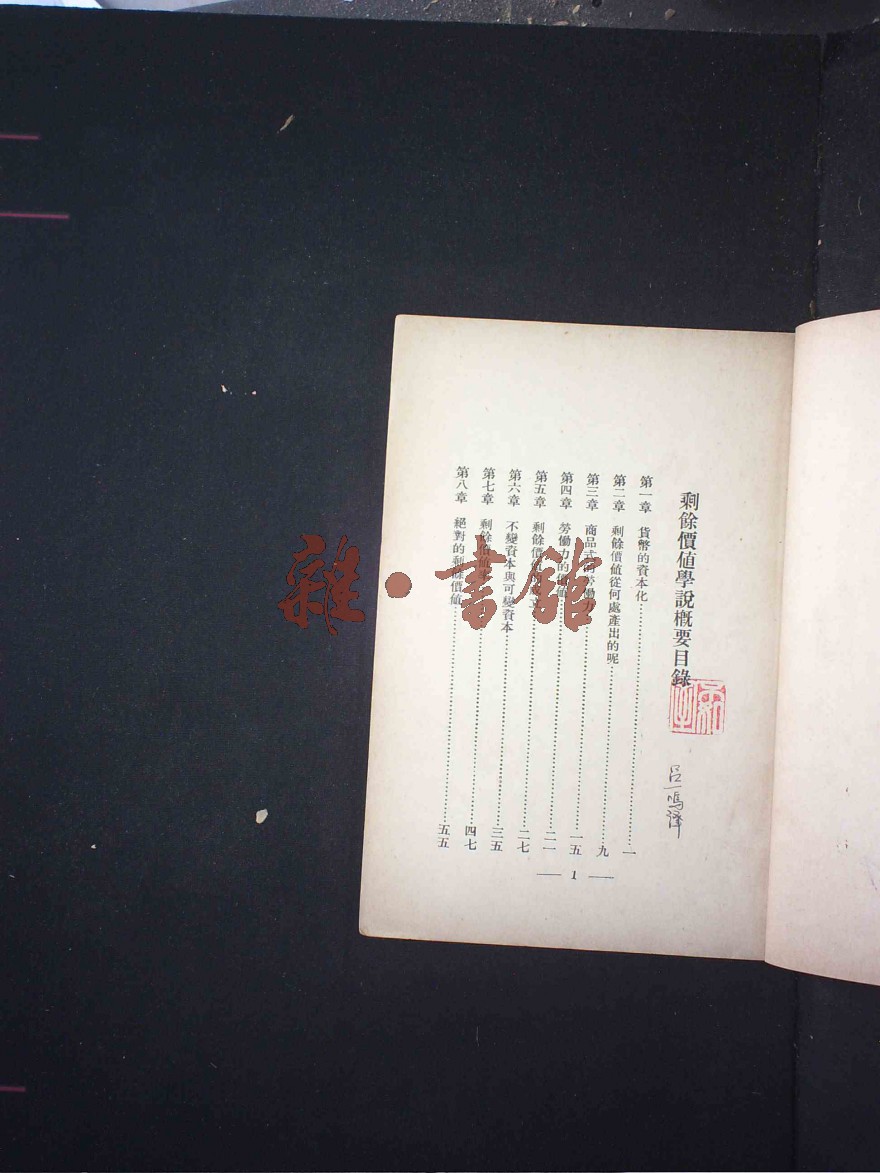 剩餘價值學說概要目錄
第一章 貨幣的資本化……一
第二章 剩餘價值從何處產出的呢……九
第三章 商品式的勞働力……一五
第四章 勞働力的價值……二一
第五章 剩餘價值……二七
第六章 不變資本與可變資本……三五
第七章 剩餘價值率……四七
第八章 絕對的剩餘價值……五五
— 1 —
呂一鳴譯
雜·書館